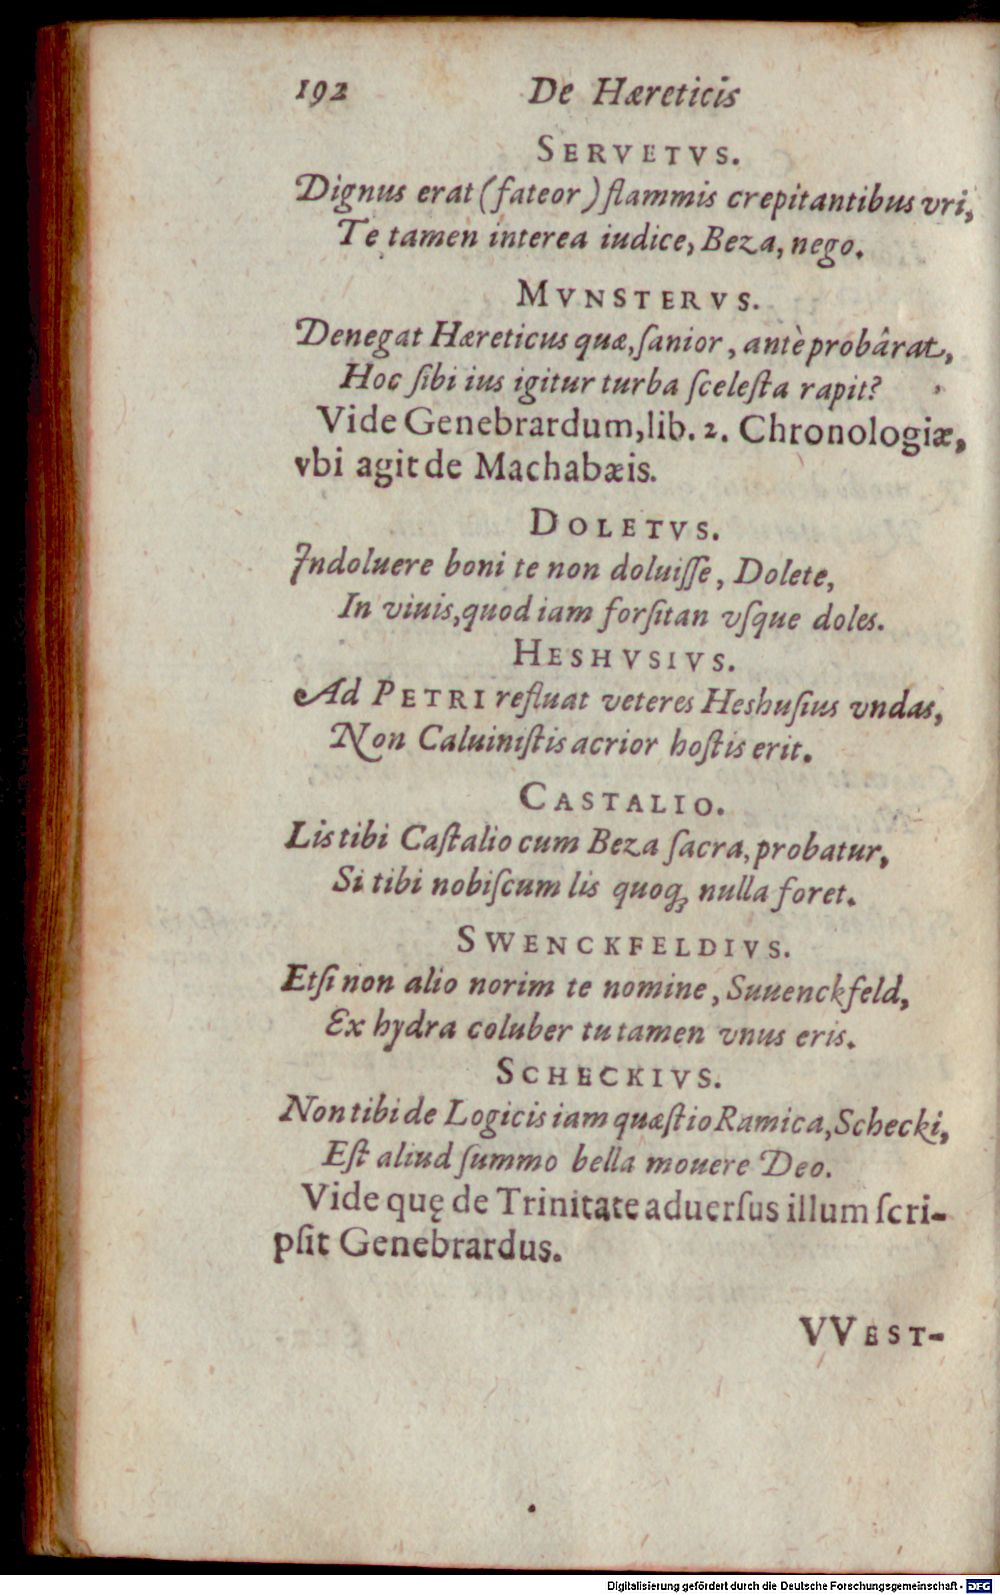 192 De Hæreticis
SERVETVS.
Dignus erat (fateor) flammis crepitantibus vri,
Te tamen interea iudice, Beza, nego.
MVNSTERVS.
Denegat Hæreticus quæ, ſanior, antè probârat,
Hoc ſibi ius igitur turba ſceleſta rapit?
Vide Genebrardum, lib. 2. Chronologiæ,
vbi agit de Machabæis.
DOLETVS.
Indoluere boni te non doluiſſe, Dolete,
In viuis, quod iam forſitan vſque doles.
HESHVSIVS.
Ad PETRI refluat veteres Heshuſius vndas,
Non Caluiniſtis acrior hoſtis erit.
CASTALIO.
Lis tibi Caſtalio cum Beza ſacra, probatur,
Si tibi nobiſcum lis quoq; nulla foret.
SWENCKFELDIVS.
Etſi non alio norim te nomine, Suuenckfeld,
Ex hydra coluber tu tamen vnus eris.
SCHECKIVS.
Non tibi de Logicis iam quæſtio Ramica, Schecki,
Eſt aliud ſummo bella mouere Deo.
Vide quę de Trinitate aduerſus illum ſcri-
pſit Genebrardus.
VVEST-
Digitalisierung gefördert durch die Deutsche Forschungsgemeinschaft - DFG